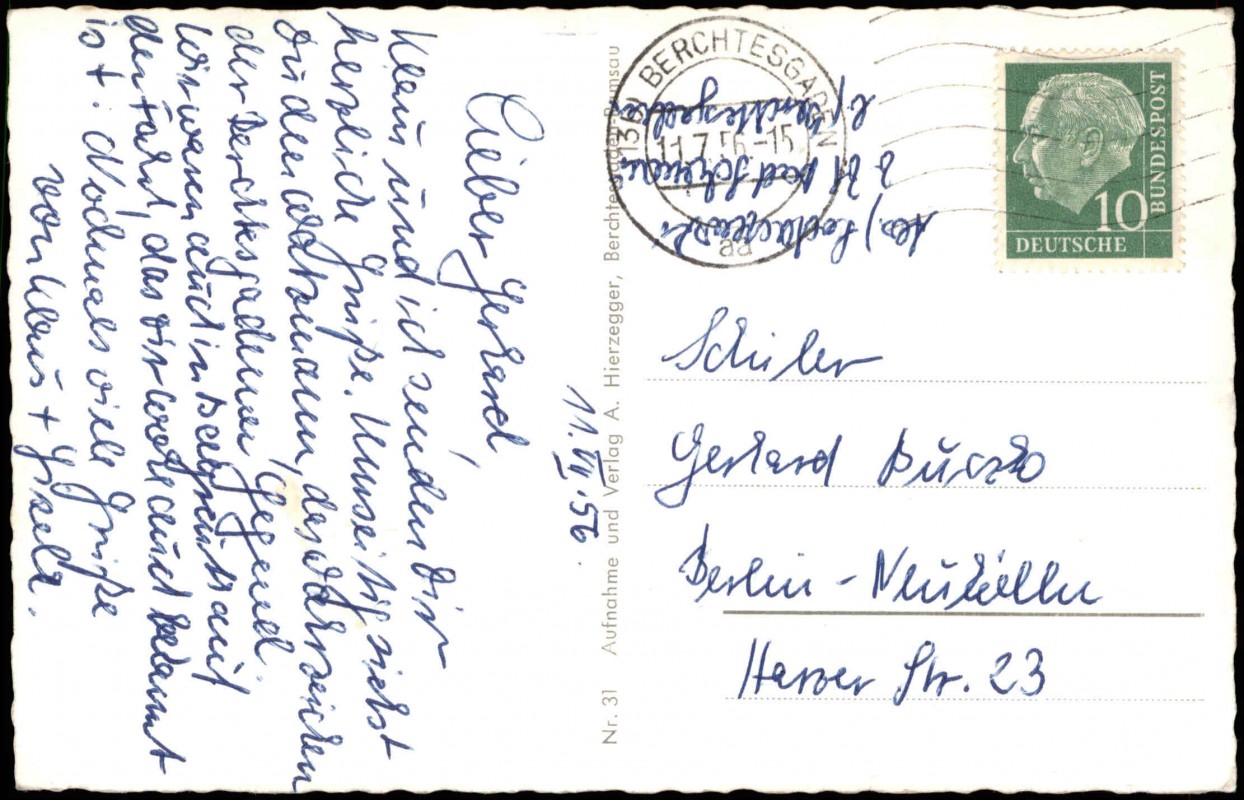 Lieber Gerhard,
Klaus und ich senden Dir
herzliche Grüße. Umseitig siehst
Du den Watzmann, das Wahrzeichen
der Berchtesgadener Gegend.
Wir waren auch in Bayreuth auf
der Fahrt, das Dir wohl auch bekannt
ist. Nochmals viele Grüße
von Klaus + Gisela.
11.VII.56.
Nr. 31 Aufnahme und Verlag A. Hierzegger, Berchtesgaden-Ramsau
(13b) BERCHTESGADEN
11.7.56-15
aa
b/Berchtesgaden
Bad
DEUTSCHE
BUNDESPOST
10
Schüler
Gerhard
Berlin-Neukölln
Harzer Str. 23